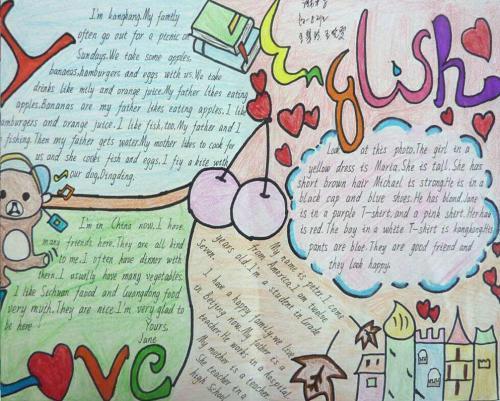 I
I'm kangkang.My family
often go out for a picnic on
Sundays.We take some apples.
bananas,hamburgers and eggs with us.We take
drinks like mily and orange juice.My father likes eating
apples.Bananas are my father likes eating apples.I like
hamburgers and orange juice.I like fish,too.My father and I
fishing.Then my father gets water.My mother likes to cook for
us and she cooks fish and eggs.I fiy a kite with
our dog,Dingding.
English
Look at this photo.The girl in a
yellow dress is Maria.She is tall.She has
short brown hair Michael is strong.He is in a
black cap and blue shoes.He has blond.Jane
is in a purple T-shirt.and a pink shirt.Her hair
is red.The boy in a white T-shirt is kangkang.His
pants are blue.They are good friend and
they look happy.
I'm in China now.I have
many friends here.They are all kind
to me.I often have dinner with
them.I usually have many vegetables.
I like Sichuan faood and Guangdong food
very myth.They are nice.I'm very glad to
be here
Yours,
Jane
My name is peter.I come
from America.I am twelve
years old.I'm a student in Grade
Seven.
I have a happy family.we live
in Beijing now.My father is a
teacher.He works in a hospital.
My mother is a teacher
She teacher in a
high School
Love